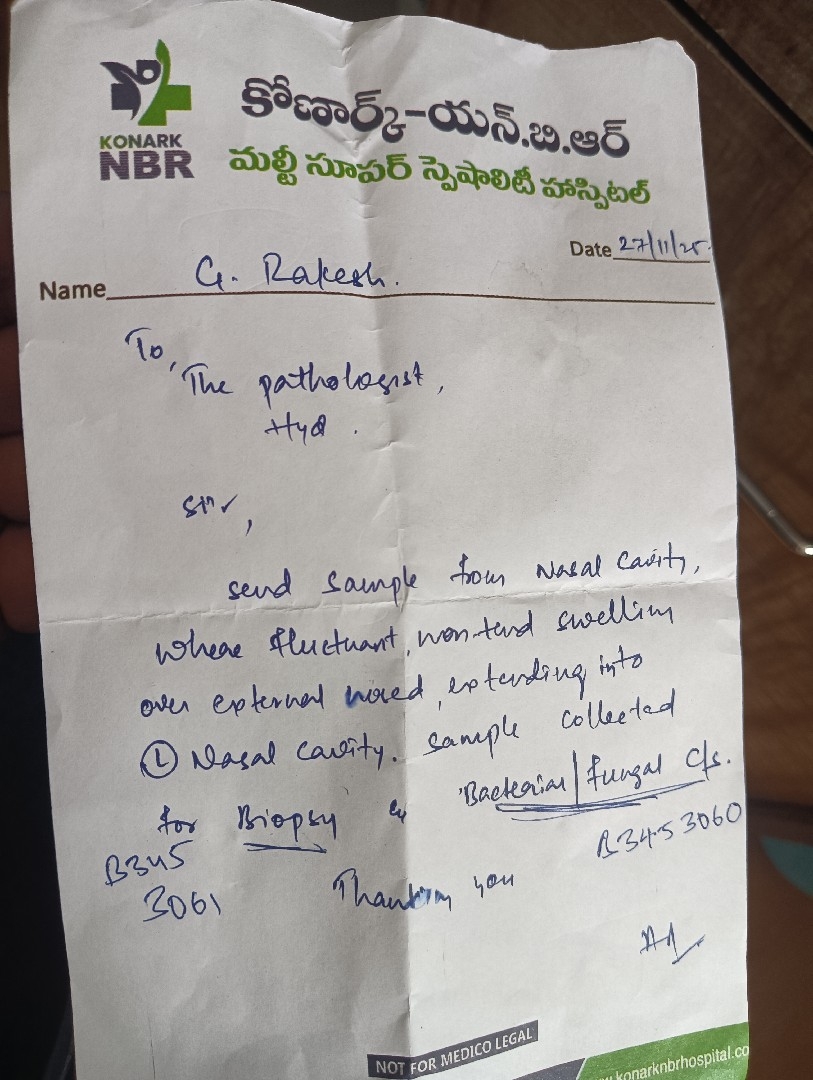 KONARK
NBR
కోణార్క్-యన్.బి.ఆర్
మల్టీ సూపర్ స్పెషాలిటీ హాస్పిటల్
Date 27/11/25
Name G. Rakesh.
To,
The pathologist,
Hyd.
Sir,
send sample from Nasal Cavity,
where fluctuant, non-tend swelling
over external nosed, extending into
Ⓛ Nasal cavity. sample collected
for Biopsy & Bacterial/fungal C/s.
B345
3061
B345 3060
Thanking you
NOT FOR MEDICO LEGAL
konarknbrhospital.co